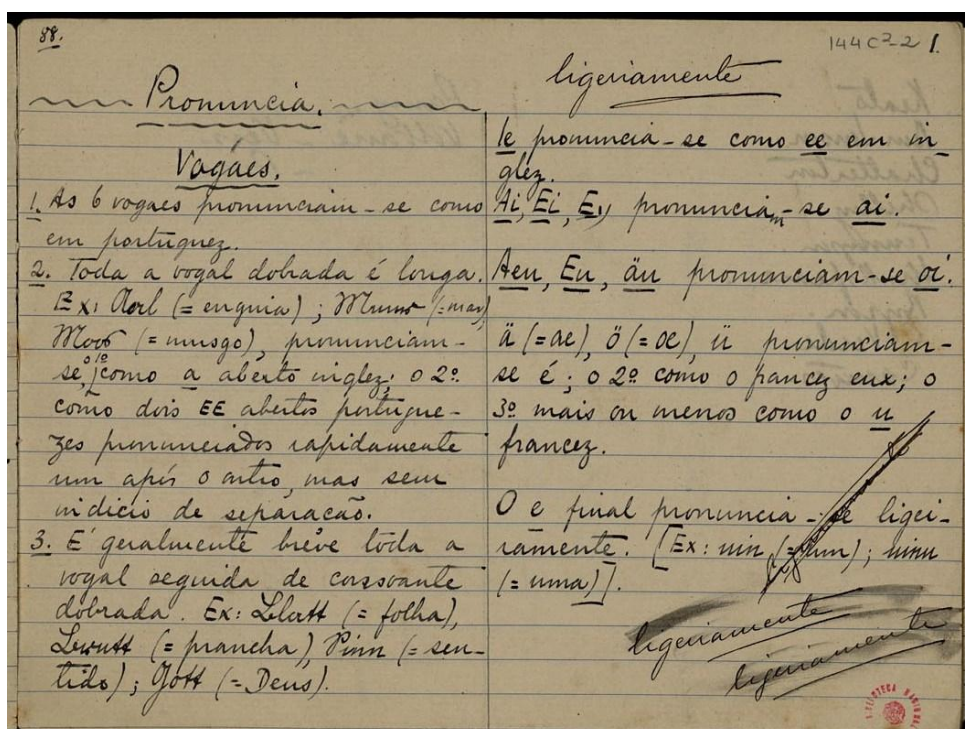 88.
Pronuncia.
Vogáes.
1. As 6 vogaes pronunciam-se como
em portuguez.
2. Toda a vogal dobrada é longa.
Ex: Aal (= enguia); Meer (= mar),
Moos (= musgo), pronunciam-
se, o 1º como a aberto inglez; o 2º
como dois EE abertos portugue-
zes pronunciados rapidamente
um após o outro, mas sem
indicio de separacão.
3. É geralmente breve toda a
vogal seguida de consoante
dobrada. Ex: Blatt (= folha),
Brett (= prancha), Sinn (= sen-
tido); Gott (= Deus).
144C2-2 1.
ligeiriamente
Ie pronuncia-se como ee em in-
glez.
Ai, Ei, Ey pronunciam-se ai.
Aeu, Eu, äu pronunciam-se oi.
ä (=ae), ö (=oe), ü pronunciam-
se é; o 2º como o francez eux; o
3º mais ou menos como o u
francez.
O e final pronuncia-se ligei-
ramente. [Ex: ein (= um); eine
(= uma)].
ligeiriamente
ligeiriamente